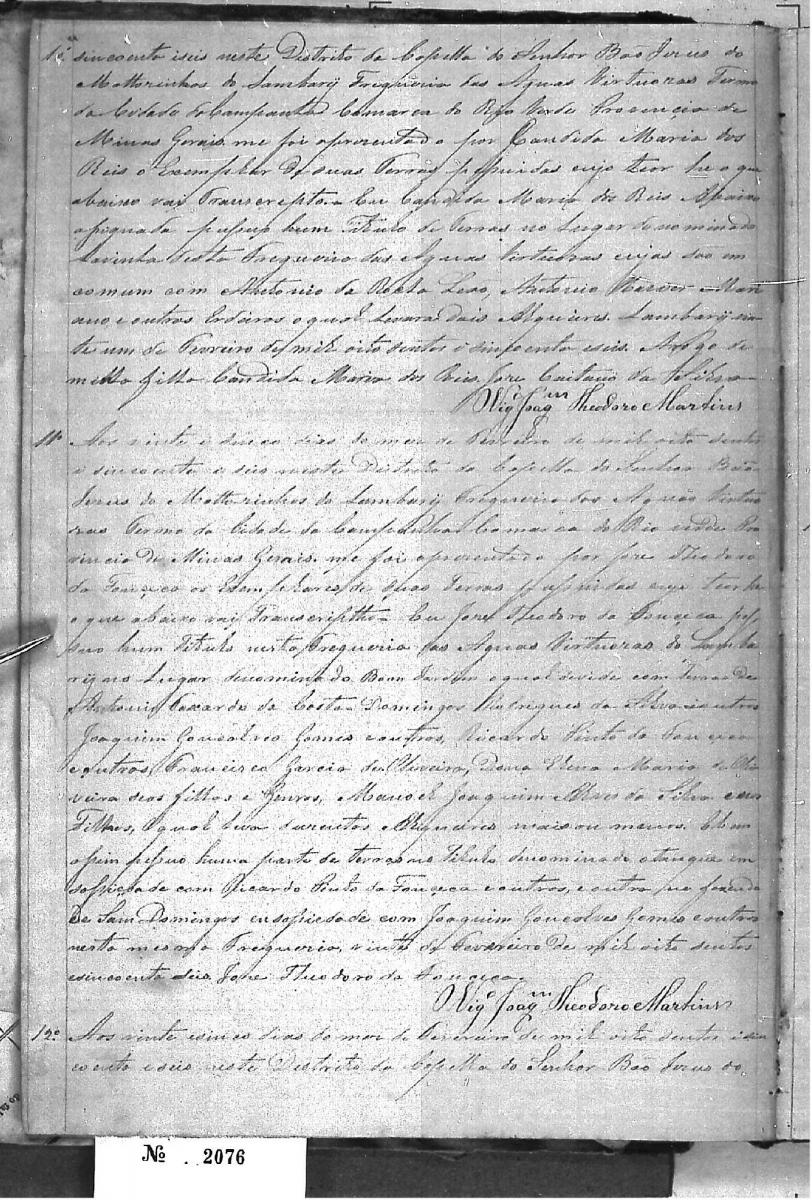 sincoenta iseis neste Distrito da Capella do Senhor Bão Jezus do
Mattozinhos do Lambarÿ Freguezia das Agoas Virtuozas Termo
da Cidade da Campanha Comarca do Rio Verde Provincia de
Minas Gerais me foi aprezentado por Candida Maria dos
Reis o Exemplar de suas Terras possuidas cujo teor he o que
abaixo vai Transcripto. Eu Candida Maria dos Reis Abaixo
asignada possuo hum Titulo de Terras no Lugar denominado
desta Freguezia das Agoas Virtuozas cujas são em
comum com Antonio da Rocha Leão, Antonio Xavier
e outros Erdeiros o qual levara dois Alqueires. Lambarÿ vin
te um de Fevreiro de mil oito sentos i sincoenta eseis. Arogo de
filho Candida Maria dos Reis Joze Caetano da Silva
Vigº Joaqm Theodoro Martins
11º Aos vinte e sinco dias do mez de Fevreiro de mil oito sentos
e sincoenta e seis neste Distrito da Capella do Senhor Bão
Jezus do Mattozinhos do Lambarÿ Freguezia das Agoas Virtuo
zas Termo da Cidade da Campanha Comarca do Rio verde Pro
vincia de Minas Gerais. me foi aprezentado por Joze Theodoro
da Fonçeca os Exemplares de suas Terras possuidas cujo teor he
o que abaixo vai Transcriptho. Eu Joze Theodoro da Fonçeca pos
suo hum Titulo nesta Freguezia das Agoas Virtuozas do Lamba
ri no Lugar denominado Bom Jardim o qual devide com Terras de
Antonio da Costa Domingos Rodrigues da Silva e outros
Joaquim Gonsalves Gomes e outros, Ricardo Pinto da Fonçeca
e outros, Francisco Garcia de Oliveira, Dona Elena Maria de Oli
veira seos filhos e Genros, Manoel Joaquim Alves da Silva e seos
Filhos, o qual leva duzentos Alqueires mais ou menos. Tem
asim possuo huma parte de terras no Titulo denominado otanque em
sosiedade com Ricardo Pinto da Fonçeca e outros, e outra na fazenda
De Sam Domingos em sosiedade com Joaquim Gonçalves Gomes e outros
nesta mesma Freguezia, vinte de Fevereiro De mil oito sentos
esincoenta eseis Joze Theodoro da Fonçeca.
Vigº Joaqm Theodoro Martins
12º Aos vinte esinco dias do mez de Fevereiro de mil oito sentos i sin
coenta eseis neste Distrito da Capella do Senhor Bão Jezus do
Nº . 2076